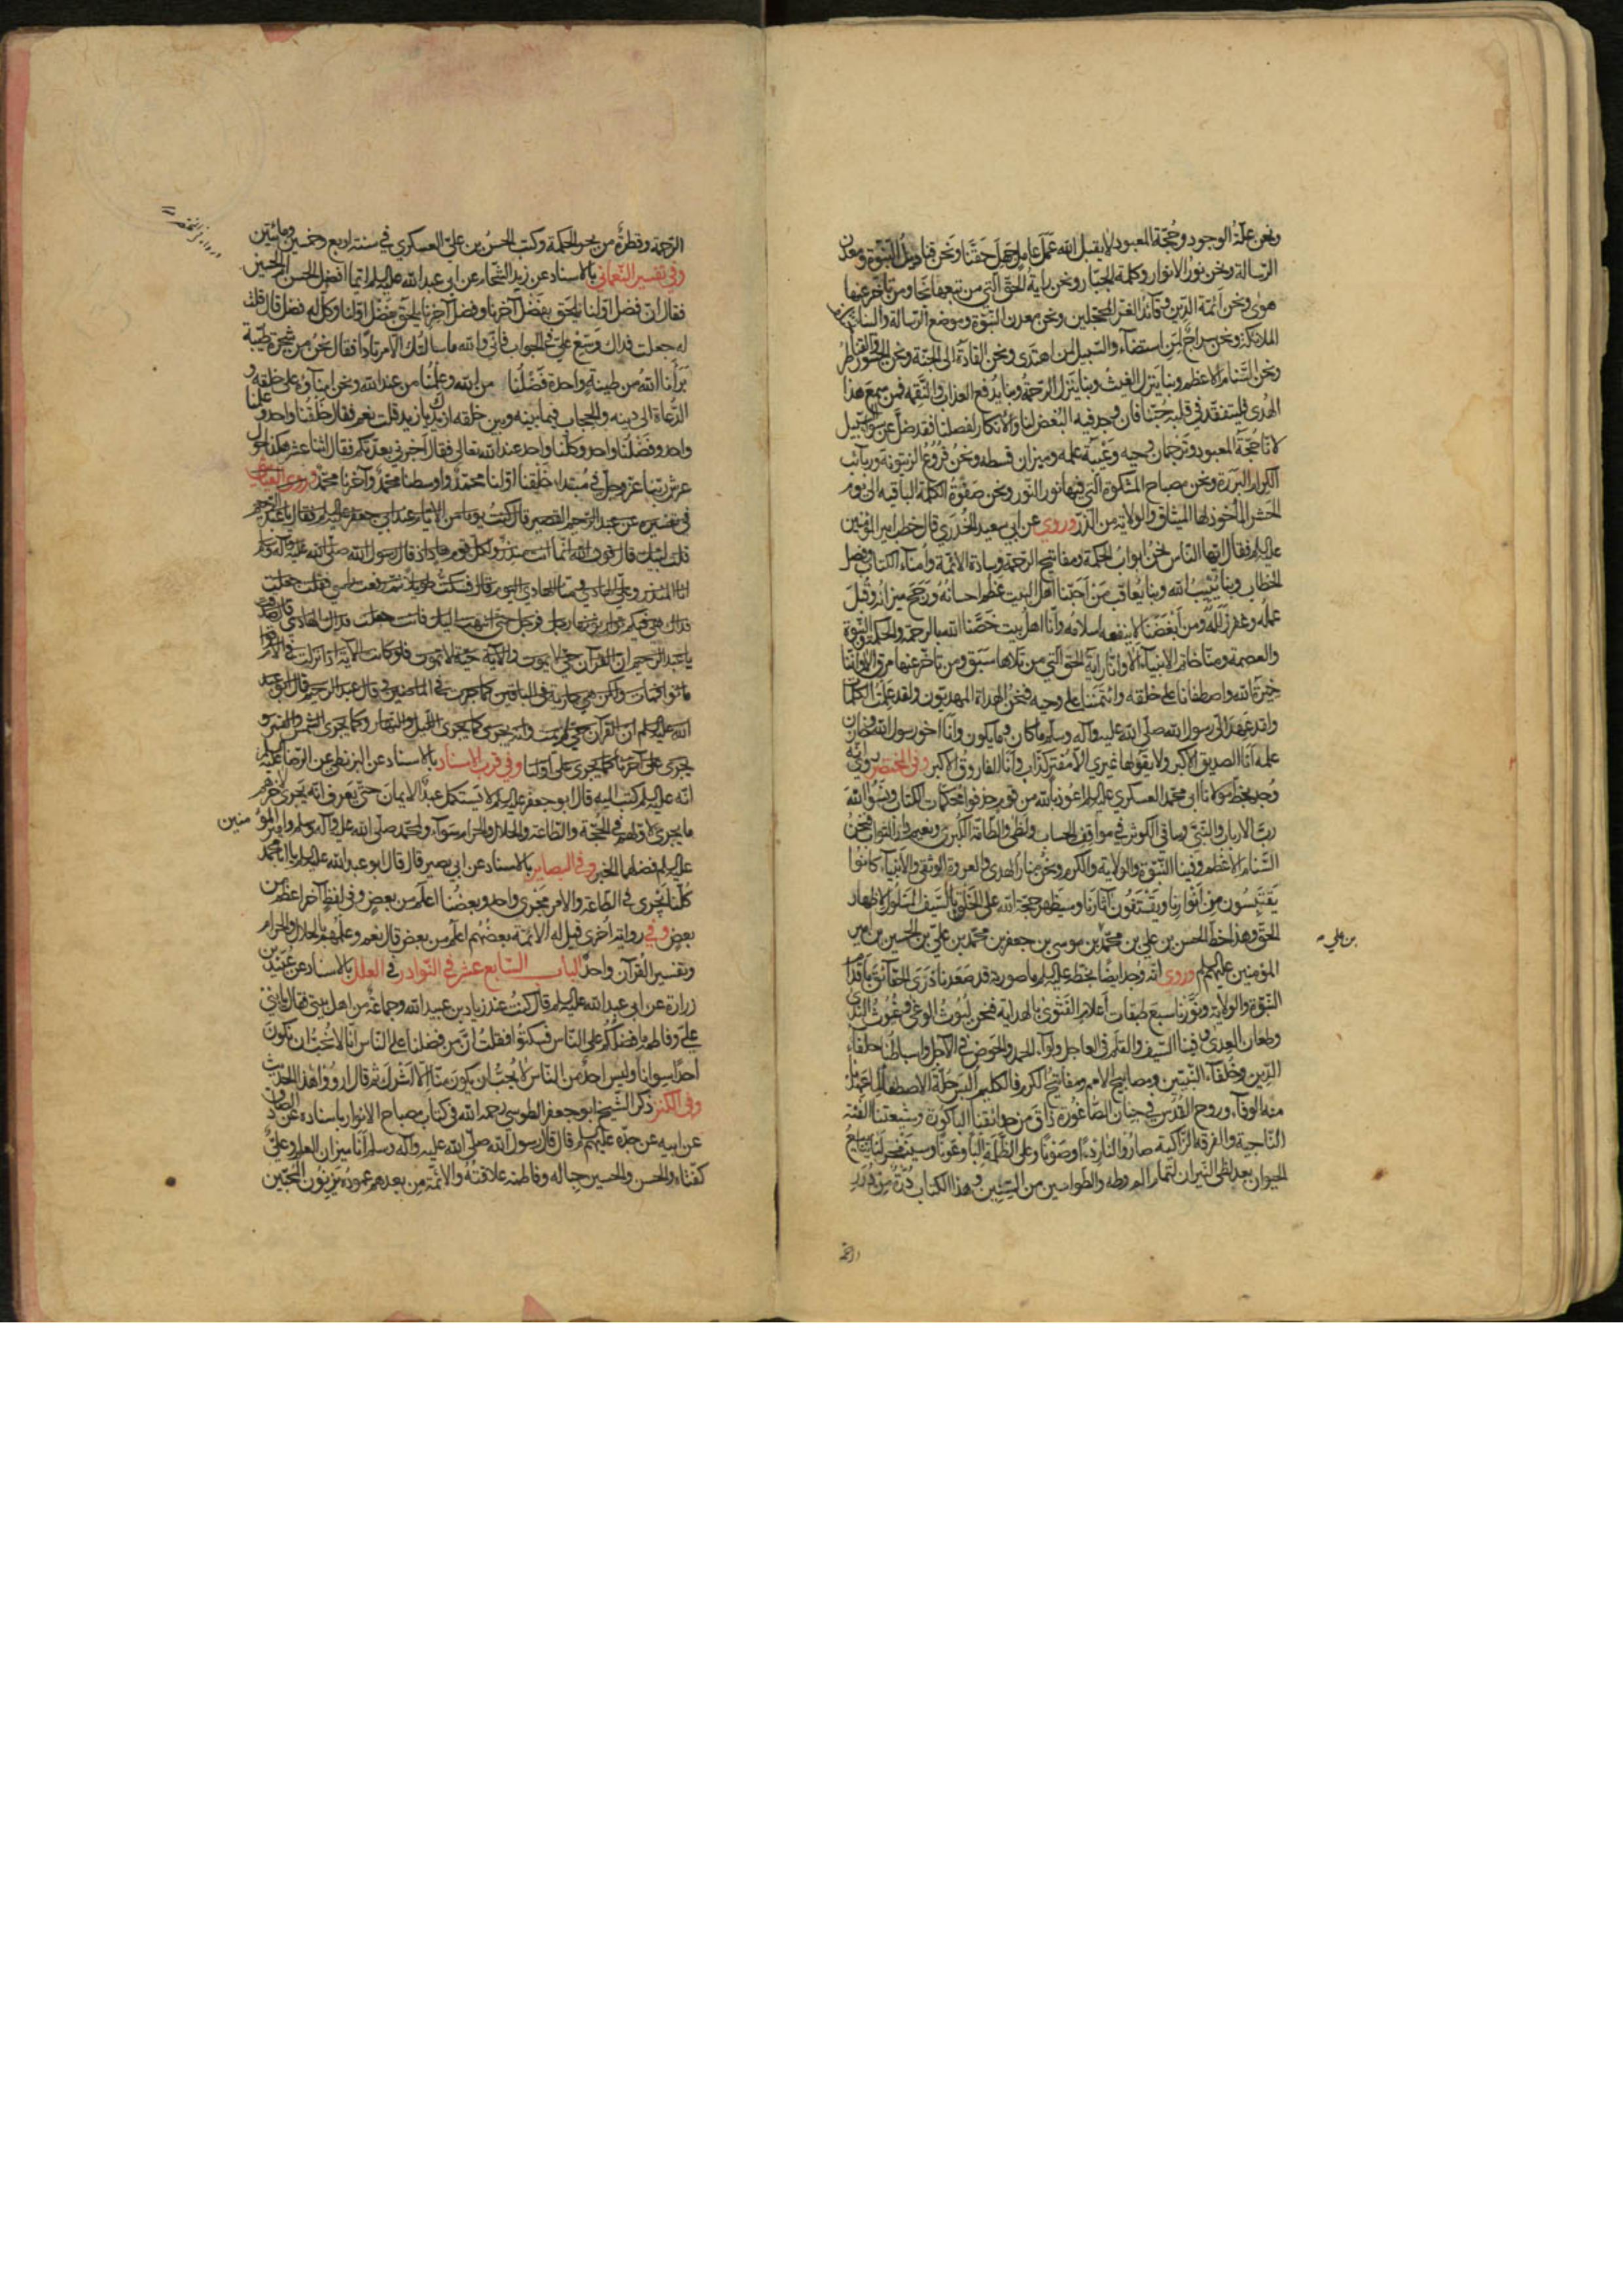 ونحن علّة الوجود وحجّة المعبود لا يقبل الله عمل عامل جهل حقّنا ونحن قناديل النبوّة ومعدن
الرسالة ونحن نور الانوار وكلمة الجبّار ونحن راية الحقّ الّتي من تبعها نجا ومن تأخّر عنها
هوى ونحن أئمة الدين وقائد الغرّ المحجّلين ونحن معدن النبوّة وموضع الرسالة والينا
الملائكة ونحن سراج لمن استضآء والسبيل لمن اهتدى ونحن القادة الى الجنّة ونحن الجسور والقناطر
ونحن السّنام الاعظم وبنا ينزل الغيث وبنا ينزل الرّحمة وبنا يدفع العذاب والنّقمة فمن سمع هذا
الهدى فليتفقّد في قلبه حبّنا فان وجد فيه البغض لنا والانكار لفضلنا فقد ضلّ عن سواء السبيل
لانّا حجّة المعبود وترجمان وحيه وعيبة علمه وميزان قسطه ونحن فروع الزيتونة وربائب
الكرام البررة ونحن مصباح المشكوة الّتي فيها نور النّور ونحن صفوة الكلمة الباقيه الى يوم
الحشر المأخوذ لها الميثاق والولاية من الذرّ وروي عن ابي سعيد الخدري قال خطب امير المؤمنين
عليه السلم فقال ايّها النّاس نحن ابواب الحكمة ومفاتيح الرحمة وسادة الائمّة وأمنآء الكتاب وفصل
الخطاب وبنا يثيب الله وبنا يعاقب من أحبّنا اهل البيت عظم احسانه ورجح ميزانه وقبل
عمله وغفر زلله ومن أبغضنا لا ينفعه اسلامه وانّا اهل بيت خصّنا الله بالرحمة والحكمة والنبوّة
والعصمة ومنّا خاتم الانبيآء الا وانّا راية الحقّ الّتي من تلاها سبق ومن تأخّر عنها مرق الا وانّنا
خيرة الله اصطفانا على خلقه وائتمننا على وحيه فنحن الهداة المهديّون ولقد علمت الكلمات
ولقد عهد الىّ رسول الله صلّى الله عليه وآله وسلم ما كان وما يكون وانا اخو رسول الله وخازن
علمه أنا الصديق الاكبر ولا يقولها غيري الّا مفتر كذّاب وأنا الفاروق الاكبر وفي المختصر روي انّه
وجد بخطّ مولانا ابي محمد العسكري عليه السلم اعوذ بالله من قوم حذفوا محكمات الكتاب ونسوا الله
ربّ الارباب والنبيّ وساقي الكوثر في مواقف الحساب ولظى والطّامّة الكبرى ونعيم دار الثواب فنحن
السّنام الاعظم وفينا النّبوّة والولاية والكرم ونحن منار الهدى والعروة الوثقى والأنبيآء كانوا
يقتبسون من أنوارنا ويقتفون آثارنا وسيظهر حجّة الله على الخلق بالسّيف المسلول لاظهار
الحقّ وهذا خطّ الحسن بن علي بن محمّد بن موسى بن جعفر بن محمّد بن عليّ بن الحسين بن امير
بن علي
المؤمنين عليهم السلم وروي انّه وجد ايضا بخطه عليه السلم ما صورته قد صعدنا ذرى الحقائق باقدام
النبوّة والولاية ونوّرنا سبع طبقات أعلام الفتوى بالهداية فنحن ليوث الوغى وغيوث الندى
وطعان العدى وفينا السّيف والقلم في العاجل ولوآء الحمد والحوض في الآجل واسباطنا حلفآء
الدّين وخلفآء النبيّين ومصابيح الامم ومفاتيح الكرم فالكليم ألبس حلّة الاصطفآء لما عهدنا
منه الوفآء وروح القدس في جنان الصّاغورة ذاق من حدائقنا الباكورة وشيعتنا الفئة
النّاجية والفرقة الزّاكية صاروا لنا ردءا وصونا وعلى الظّلمة إلبا وعونا وسيفجر لنا ينابيع
الحيوان بعد لظى النيران لتمام الم وطه والطواسين من السنين وهذا الكتاب درّة من درر
الرحمة
الرّحمة وقطرة من بحر الحكمة وكتب الحسن بن عليّ العسكري في سنة اربع وخمسين ومائتين
وفي تفسير النّعماني بالاسناد عن زيد الشّحام عن ابي عبد الله عليه السلم ايّما افضل الحسن او الحسين
فقال ان فضل اوّلنا يلحق بفضل آخرنا وفضل آخرنا يلحق بفضل اوّلنا وكلّ له فضل قال قلت
له جعلت فداك وسّع عليّ في الجواب فانّي والله ما سألتك الا مرتادا فقال نحن من شجرة طيّبة
برأنا الله من طينة واحدة فضلنا من الله وعلمنا من عند الله ونحن امنآؤه على خلقه و
الدّعاة الى دينه والحجاب فيما بينه وبين خلقه ازيدك يا زيد قلت نعم فقال خلقنا واحد وعلمنا
واحد وفضلنا واحد وكلّنا واحد عند الله تعالى فقال أخبرني بعدّتكم فقال اثنا عشر هكذا حول
عرش ربّنا عز وجل في مبتدا خلقنا اوّلنا محمّد واوسطنا محمّد وآخرنا محمّد وروى العيّاشي
في تفسيره عن عبد الرّحيم القصير قال كنت يوما من الايّام عند ابي جعفر عليه السلم فقال يا عبد الرّحيم
قلت لبّيك قال قول الله انّما انت منذر ولكلّ قوم هاد اذ قال رسول الله صلّى الله عليه وآله وسلم
انا المنذر وعليّ الهادي فمن الهادي اليوم قال فسكتّ طويلا ثم رفعت رأسي فقلت جعلت
فداك هي فيكم توارثونها رجل فرجل حتّى انتهت اليك فانت جعلت فداك الهادي قال صدقت
يا عبد الرّحيم ان القرآن حيّ لا يموت والآية حيّة لا تموت فلو كانت الآية اذا نزلت في الاقوام
ماتوا فمات القرآن ولكن هي جارية في الباقين كما جرت في الماضين وقال عبد الرحيم قال ابو عبد
الله عليه السلم ان القرآن حيّ لم يمت وانه يجري كما يجري الليل والنهار وكما يجري الشمس والقمر و
يجري على آخرنا كما يجري على اوّلنا وفي قرب الاسناد بالاسناد عن البزنطي عن الرّضا عليه السلم
انّه عليه السلم كتب اليه قال ابو جعفر عليه السلم لا يستكمل عبد الايمان حتّى يعرف انّه يجري لآخرهم
ما يجري لاوّلهم في الحجّة والطّاعة والحلال والحرام سوآء ولمحمّد صلّى الله عليه وآله وسلم وامير المؤمنين
عليه السلم فضلهما الخبر وفي البصائر بالاسناد عن ابي بصير قال قال ابو عبد الله عليه السلم يا ابا محمّد
كلّنا نجري في الطّاعة والامر مجرى واحد وبعضنا اعلم من بعض وفي لفظ آخر اعظم من
بعض وفي رواية أخرى قيل له الائمّة بعضهم اعلم من بعض قال نعم وعلمهم بالحلال والحرام
وتفسير القرآن واحد الباب السّابع عشر في النّوادر في العلل بالاسناد عن عبيد بن
زرارة عن ابي عبد الله عليه السلم قال كنت عند زياد بن عبيد الله وجماعة من اهل بيتي فقال يا بني
عليّ وفاطمة ما فضلكم على النّاس فسكتوا فقلت انّ من فضلنا على النّاس انّا لا نحبّ ان نكون
احدا سوانا وليس احد من النّاس لا يحبّ ان يكون منّا إلّا اشرك ثم قال ارووا هذا الحديث
وفي الكنز ذكر الشّيخ ابو جعفر الطوسي رحمه الله في كتاب مصباح الانوار باسناده عن الصّادق
عن ابيه عن جدّه عليهم السلم قال قال رسول الله صلّى الله عليه وآله وسلم أنا ميزان العلم وعليّ
كفّتاه والحسن والحسين حباله وفاطمة علاقته والائمّة من بعدهم عموده يزنون المحبّين